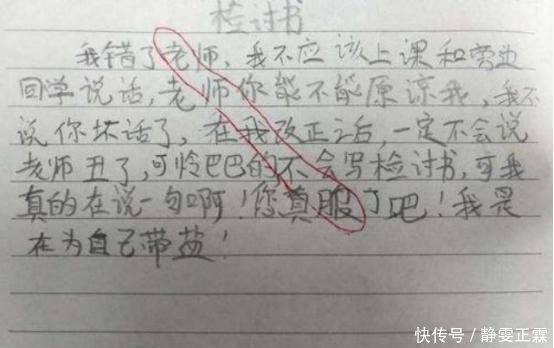 检讨书
我错了老师,我不应该上课和旁边
同学说话,老师你能不能原谅我,我不
说你坏话了,在我改正之后,一定不会说
老师丑了,可怜巴巴的不会写检讨书,可我
真的在说一句啊!您真服了吧!我是
在为自己带盐!
快传号/静雯正霖